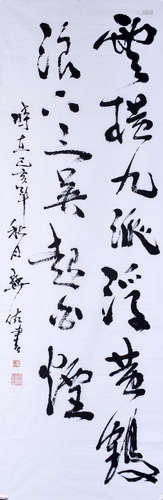 雲横九派浮黄鶴
浪下三吴起白煙
時在己亥年秋月佑書